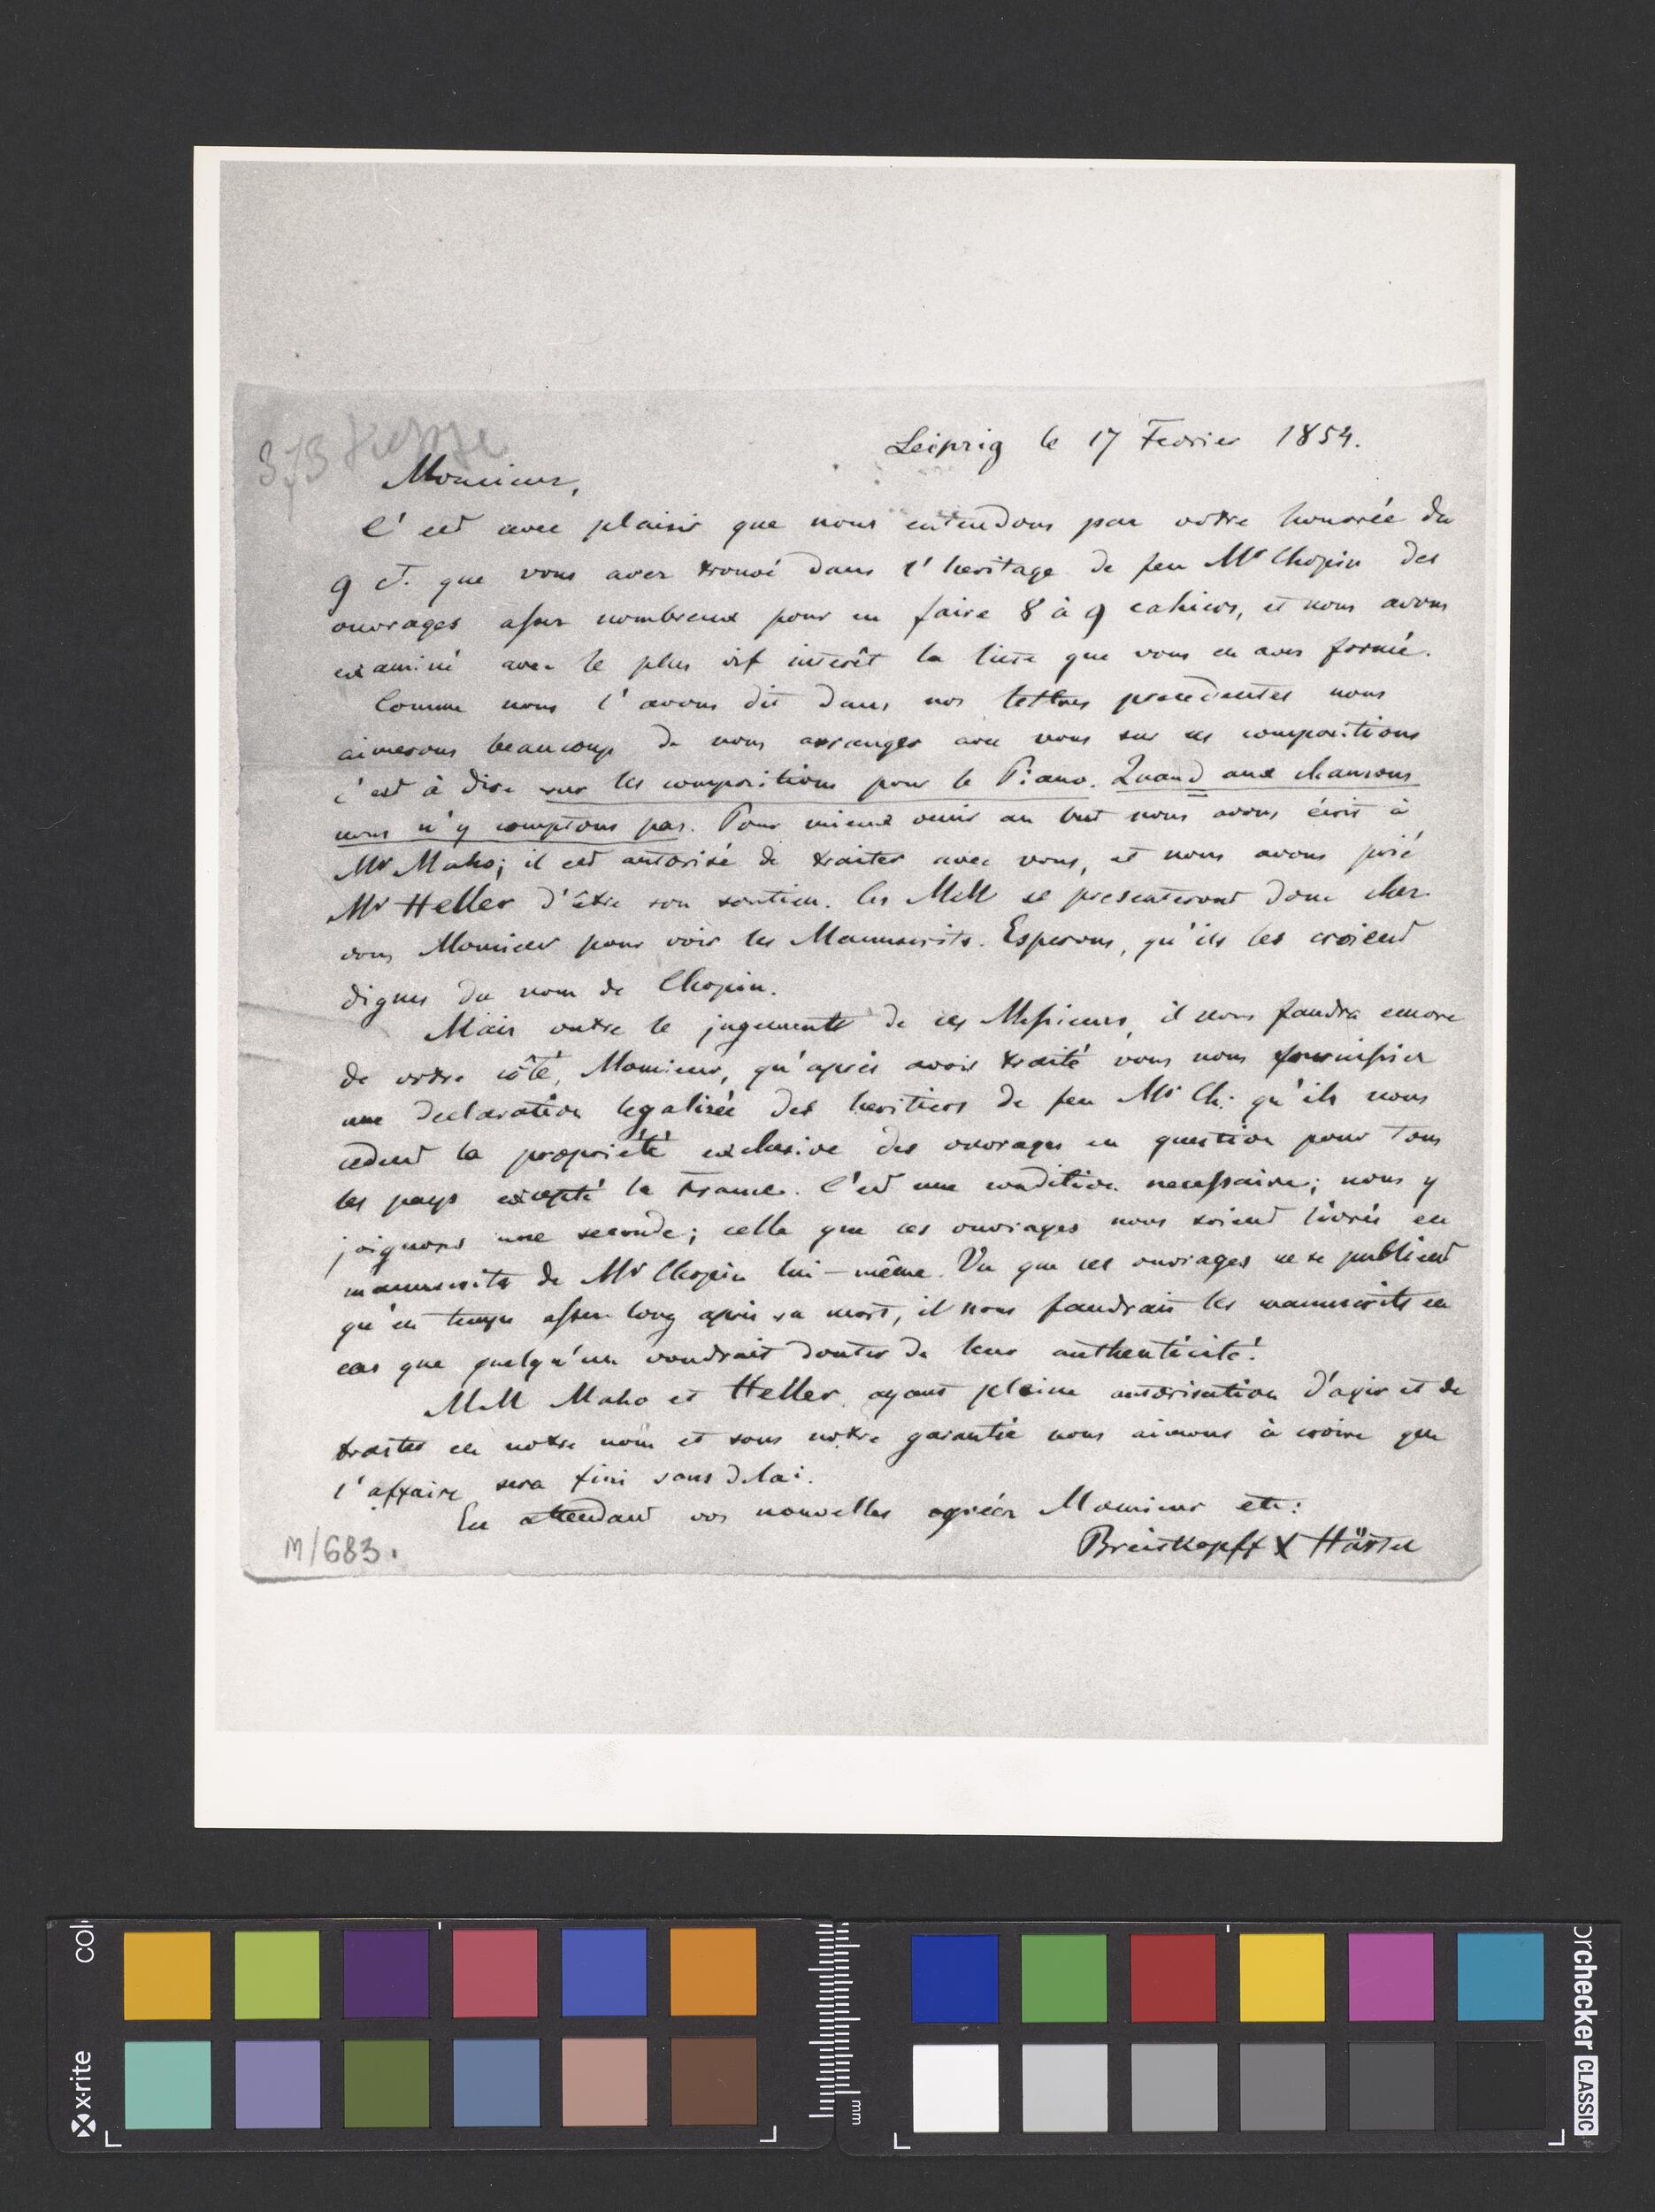 Leipzig le 17 Fevrier 1854.
Monsieur,
C'est avec plaisir que nous entendons par votre honorée du
9 ct. que vous avez trouvé dans l'heritage de feu Mr Chopin des
ouvrages assez nombreux pour en faire 8 à 9 cahiers, et nous avons
examiné avec le plus vif interêt la liste que vous en avez formé.
Comme nous l'avons dit dans nos lettres precedentes nous
aimerons beaucoup de nous arranger avec vous sur ces compositions
c'est à dire sur les compositions pour le Piano. Quand aux chansons
nous n'y comptons pas. Pour mieux venir au but nous avons écrit à
Mr Maho; il est autorisé de traiter avec vous, et nous avons prié
Mr Heller d'être son soutien. Ces MM se presenteront donc chez
vous Monsieur pour voir les Manuscrits. Esperons, qu'ils les croient
dignes du nom de Chopin.
Mais outre le jugement de ces Messieurs, il nous faudra encore
de votre côté, Monsieur, qu'après avoir traité vous nous fournissiez
une declaration legalisée des heritiers de feu Mr Ch: qu'ils nous
cedent la propriété exclusive des ouvrages en question pour tous
les pays excepté la France. C'est une condition necessaire; nous y
joignons une seconde; celle que ces ouvrages nous soient livrés en
manuscrits de Mr Chopin lui-même. Vu que ces ouvrages ne se publient
qu'en temps assez long après sa mort, il nous faudrait les manuscrits en
cas que quelqu'un voudrait douter de leur authenticité.
MM Maho et Heller ayant pleine autorisation d'agir et de
traiter en notre nom et sous notre garantie nous aimons à croire que
l'affaire sera fini sans delai.
En attendant vos nouvelles agréez Monsieur etc:
Breitkopff & Härtel
M/683.
x-rite
colorchecker CLASSIC
mm